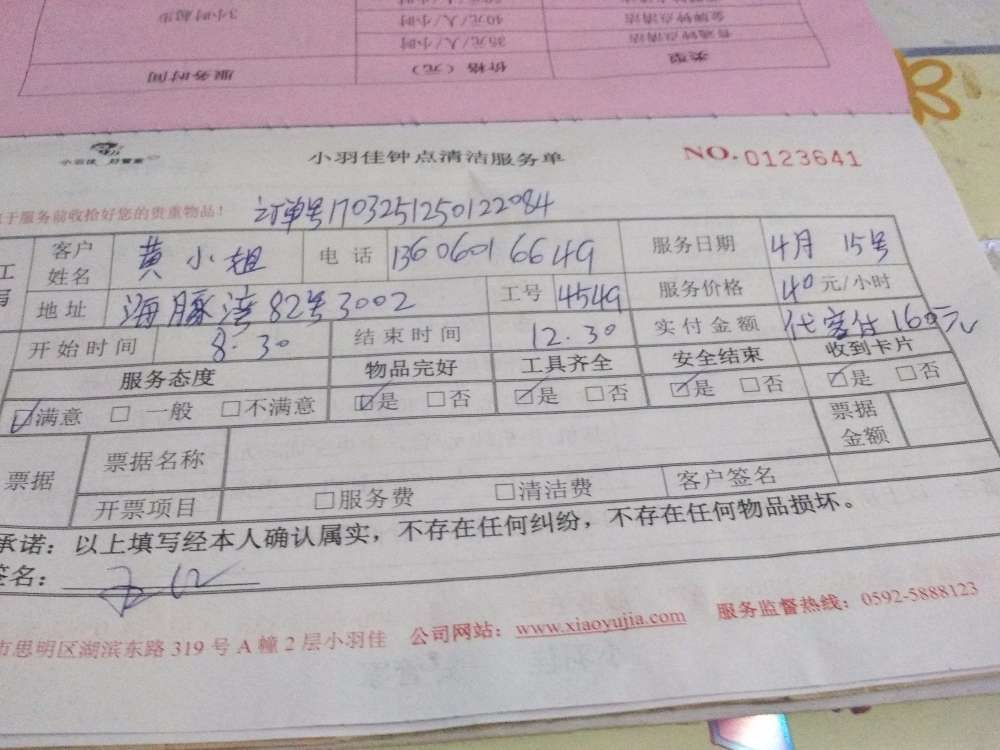 3小时起步
40元/人/小时
金牌钟点清洁
35元/人/小时
普通钟点清洁
服务时间
价格（元）
类型
小羽佳 好管家
小羽佳钟点清洁服务单
NO.0123641
于服务前收拾好您的贵重物品！
订单号170325125012 2084
客户姓名 黄小姐 电话 13606016649 服务日期 4月 15号
地址 海豚湾82号3002 工号 4549 服务价格 40元/小时
开始时间 8.30 结束时间 12.30 实付金额 代客付160元
服务态度 物品完好 工具齐全 安全结束 收到卡片
☑满意 □一般 □不满意 ☑是 □否 ☑是 □否 ☑是 □否 ☑是 □否
票据 票据名称 票据金额
开票项目 □服务费 □清洁费 客户签名
承诺：以上填写经本人确认属实，不存在任何纠纷，不存在任何物品损坏。
签名：
市思明区湖滨东路319号A幢2层小羽佳 公司网站：www.xiaoyujia.com 服务监督热线：0592-5888123